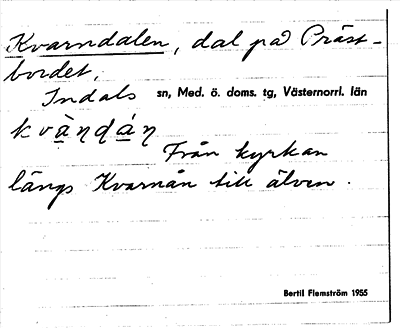 Kvarndalen, dal på Präst-
bordet,
Indals sn, Med. ö. doms. tg, Västernorrl. län
kvä̀ndá̱n
Från kyrkan
längs Kvarnån till älven.
Bertil Flemström 1955